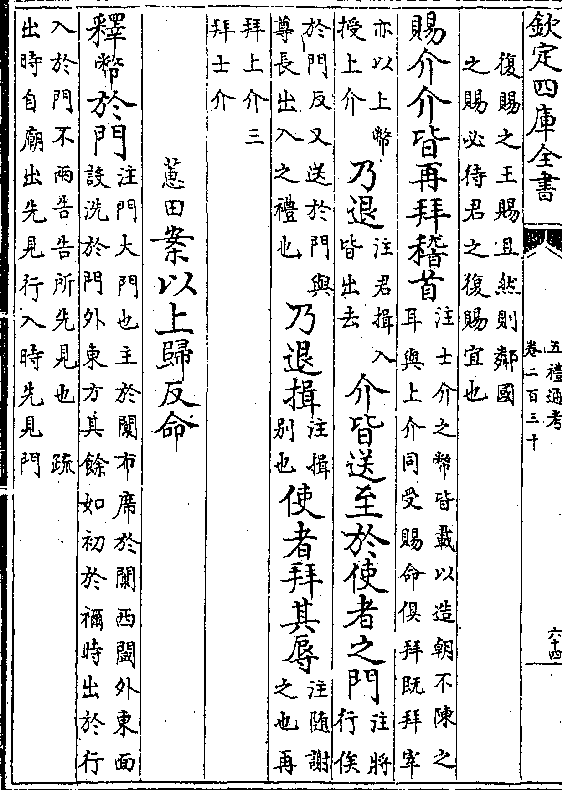 欽定四庫全書
五禮通考
卷二百三十
六十四
復賜之王賜且然則鄰國
之賜必待君之復賜宜也
賜介介皆再拜稽首
注士介之幣皆載以造朝不陳之
耳與上介同受賜命俱拜既拜宰
亦以上幣
授上介
乃退
注君揖入
皆出去
介皆送至於使者之門
注將
行俟
於門反又送於門與
尊長出入之禮也
乃退揖
注揖
別也
使者拜其辱
注隨謝
之也再
拜上介三
拜士介
蕙田案以上歸反命
釋幣於門
注門大門也主於闑布席於闑西閾外東面
設洗於門外東方其餘如初於禰時出於行
入於門不兩告告所先見也 疏
出時自廟出先見行入時先見門